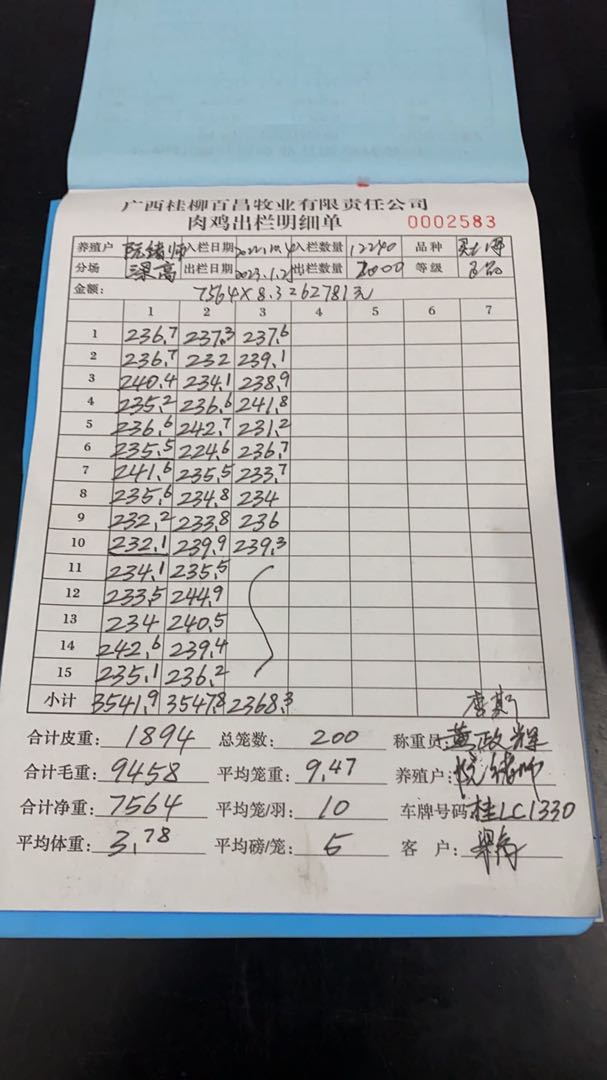 广西桂柳百昌牧业有限责任公司
肉鸡出栏明细单 0002583
养殖户 阮绪帅 入栏日期 入栏数量 12240 品种
分场 梁高 出栏日期 2023.1.25 出栏数量 2000 等级
金额: 7564×8.3=62781元
1 2 3 4 5 6 7
1 236.7 237.3 237.6
2 236.7 232 239.1
3 240.4 234.1 238.9
4 235.2 236.6 241.8
5 236.6 242.7 231.2
6 235.5 224.6 236.7
7 241.6 235.5 233.7
8 235.6 234.8 234
9 232.2 233.8 236
10 232.1 239.9 239.3
11 234.1 235.5
12 233.5 244.9
13 234 240.5
14 242.6 239.4
15 235.1 236.2
小计 3541.9 3547.8 2368.3
合计皮重: 1894 总笼数: 200 称重员: 黄政辉
合计毛重: 9458 平均笼重: 9.47 养殖户: 阮绪帅
合计净重: 7564 平均笼/羽: 10 车牌号码: 桂LC1330
平均体重: 3.78 平均磅/笼: 5 客 户: